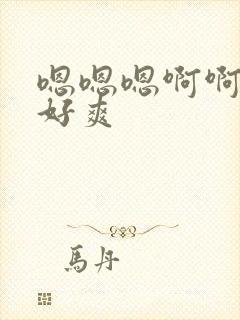 嗯嗯嗯啊啊
好爽
馬丹